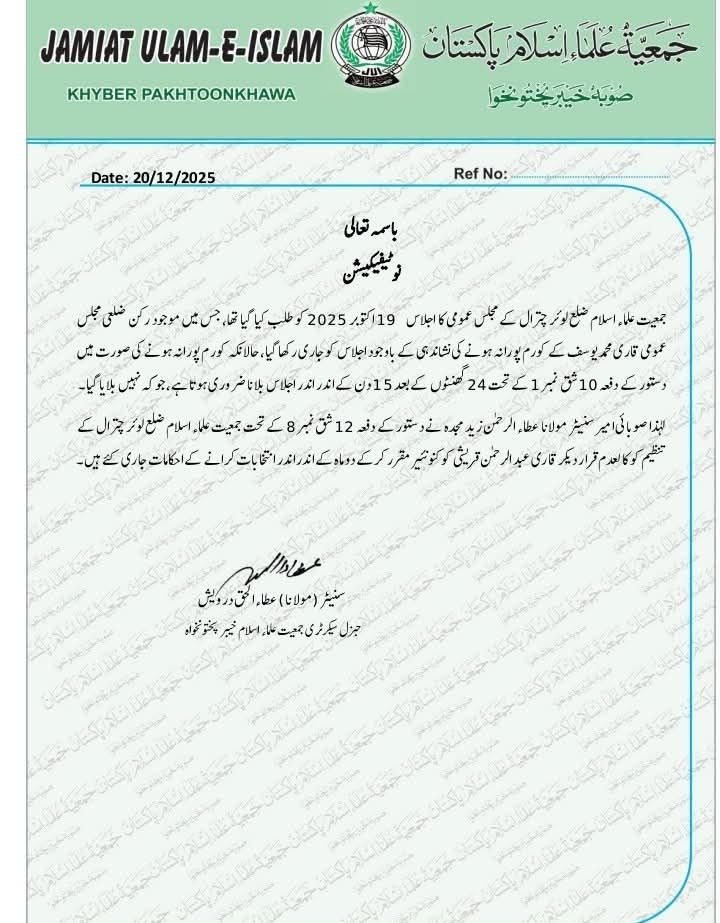 JAMIAT ULAM-E-ISLAM
جمعیۃ علماء اسلام پاکستان
KHYBER PAKHTOONKHAWA
صوبہ خیبر پختونخوا
Date: 20/12/2025
Ref No:
باسمہ تعالیٰ
نوٹیفیکیشن
جمعیت علماء اسلام ضلع لوئر چترال کے مجلس عمومی کا اجلاس 19 اکتوبر 2025 کو طلب کیا گیا تھا، جس میں موجود رکن ضلعی مجلس
عمومی قاری محمد یوسف کے کورم پورا نہ ہونے کی نشاندہی کے باوجود اجلاس کو جاری رکھا گیا، حالانکہ کورم پورا نہ ہونے کی صورت میں
دستور کے دفعہ 10 شق نمبر 1 کے تحت 24 گھنٹوں کے بعد 15 دن کے اندر اندر اجلاس بلانا ضروری ہوتا ہے، جو کہ نہیں بلایا گیا۔
لہٰذا صوبائی امیر سنیٹر مولانا عطاء الرحمٰن زید مجدہ نے دستور کے دفعہ 12 شق نمبر 8 کے تحت جمعیت علماء اسلام ضلع لوئر چترال کے
تنظیم کو کالعدم قرار دیکر قاری عبد الرحمٰن قریشی کو کنوئنیر مقرر کر کے دو ماہ کے اندر اندر انتخابات کرانے کے احکامات جاری کئے ہیں۔
سنیٹر (مولانا) عطاء الحق درویش
جنرل سیکرٹری جمعیت علماء اسلام خیبر پختونخواہ